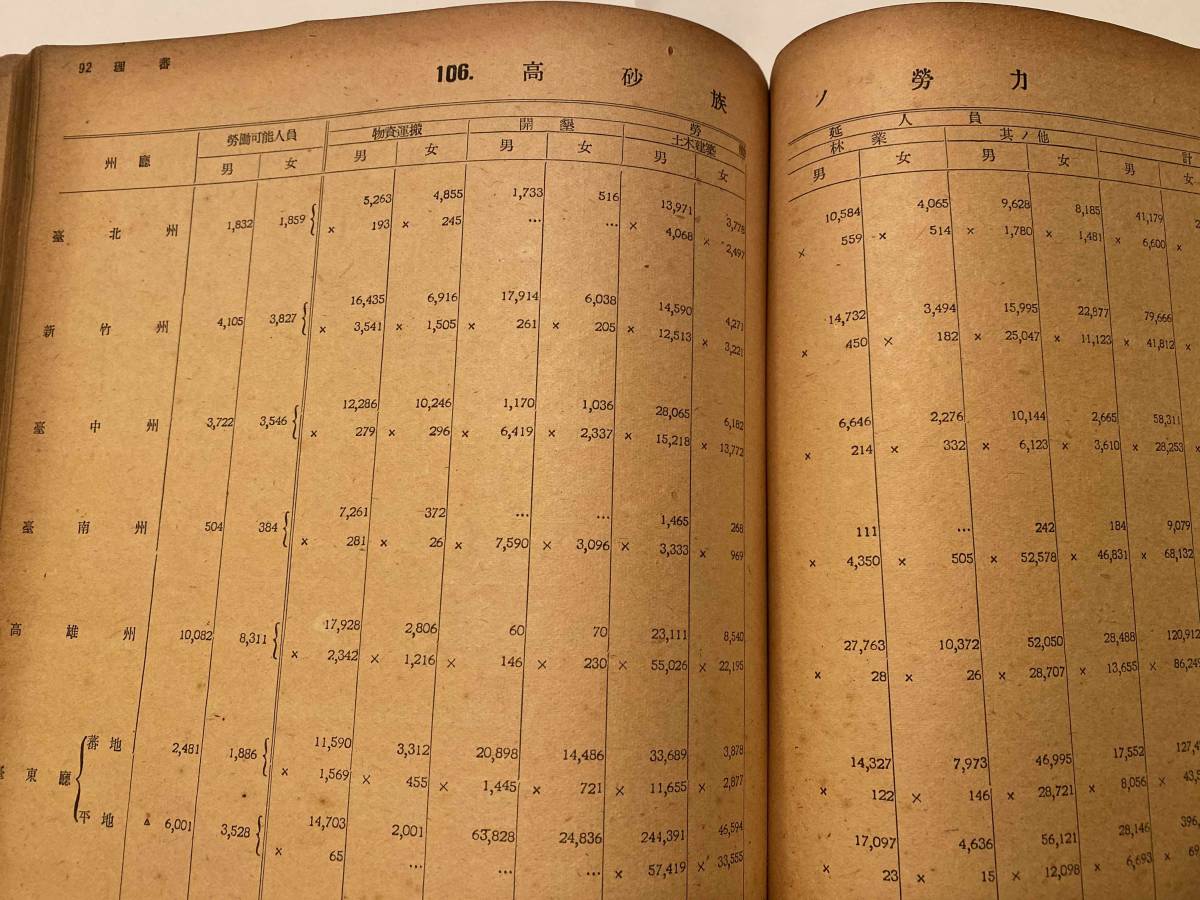 92 理蕃
106. 高砂族ノ勞力
州廳 勞働可能人員 勞 延人員
物資運搬 開墾 土木建築 林業 其ノ他 計
男 女 男 女 男 女 男 女 男 女 男 女 男 女
5,263 4,855 1,733 516 13,971 3,778 10,584 4,065 9,628 8,185 41,179
臺北州 1,832 1,859 { × 193 × 245 … … × 4,068 × 2,497 × 559 × 514 × 1,780 × 1,481 × 6,600 ×
16,435 6,916 17,914 6,038 14,590 4,271 14,732 3,494 15,995 22,877 79,666
新竹州 4,105 3,827 { × 3,541 × 1,505 × 261 × 205 × 12,513 × 3,221 × 450 × 182 × 25,047 × 11,123 × 41,812 ×
12,286 10,246 1,170 1,036 28,065 6,182 6,646 2,276 10,144 2,665 58,311
臺中州 3,722 3,546 { × 279 × 296 × 6,419 × 2,337 × 15,218 × 13,772 × 214 × 332 × 6,123 × 3,610 × 28,253 ×
7,261 372 … … 1,465 268 111 … 242 184 9,079
臺南州 504 384 { × 281 × 26 × 7,590 × 3,096 × 3,333 × 969 × 4,350 × 505 × 52,578 × 46,831 × 68,132
17,928 2,806 60 70 23,111 8,540 27,763 10,372 52,050 28,488 120,912
高雄州 10,082 8,311 { × 2,342 × 1,216 × 146 × 230 × 55,026 × 22,195 × 28 × 26 × 28,707 × 13,655 × 86,249
11,590 3,312 20,898 14,486 33,689 3,878 14,327 7,973 46,995 17,552
臺東廳 { 蕃地 2,481 1,886 { × 1,569 × 455 × 1,445 × 721 × 11,655 × 2,877 × 122 × 146 × 28,721 × 8,056 ×
14,703 2,001 63,828 24,836 244,391 46,594 17,097 4,636 56,121 28,146
平地 ▵ 6,001 3,528 { × 65 … … … × 57,419 × 33,555 × 23 × 15 × 12,098 × 6,693 ×